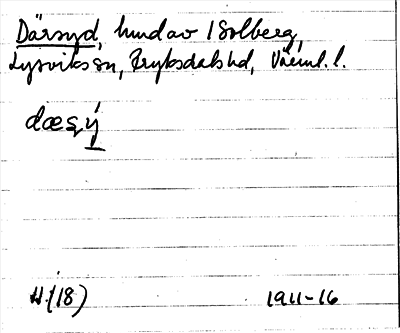 Därsyd, hmd av 1 Solberg,
Lysviks sn, Fryksdals hd, Värml. l.
dæsý
H. (18) 1911-16